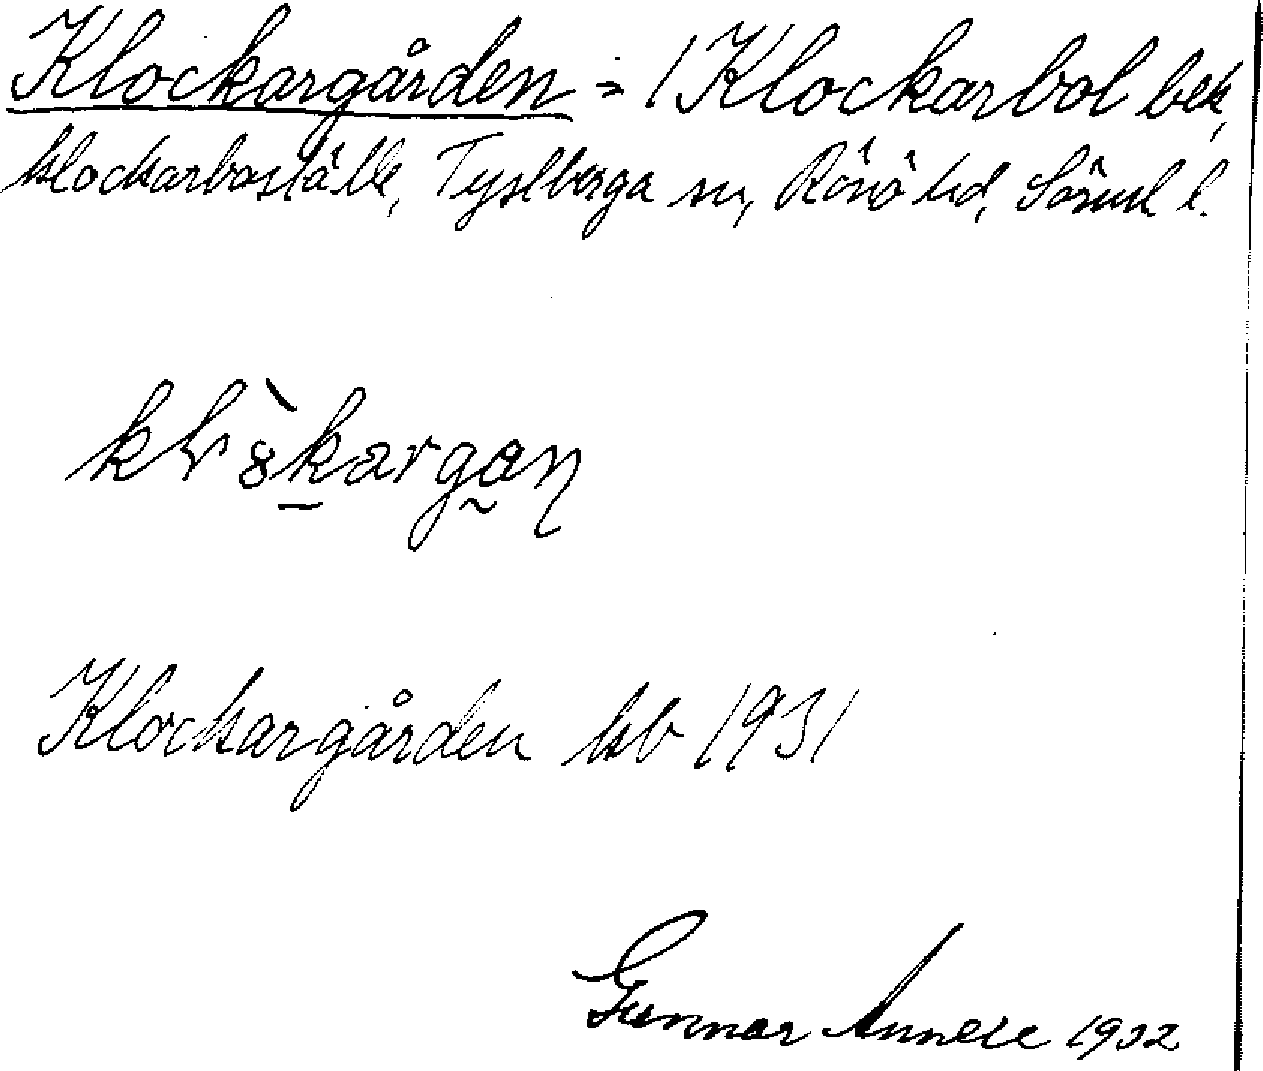 Klockargården = 1 Klockarbol bek,
klockarboställe, Tystberga sn, Rönö hd, Söderm l.
Klockargården kb 1931
Gunnar Annell 1932